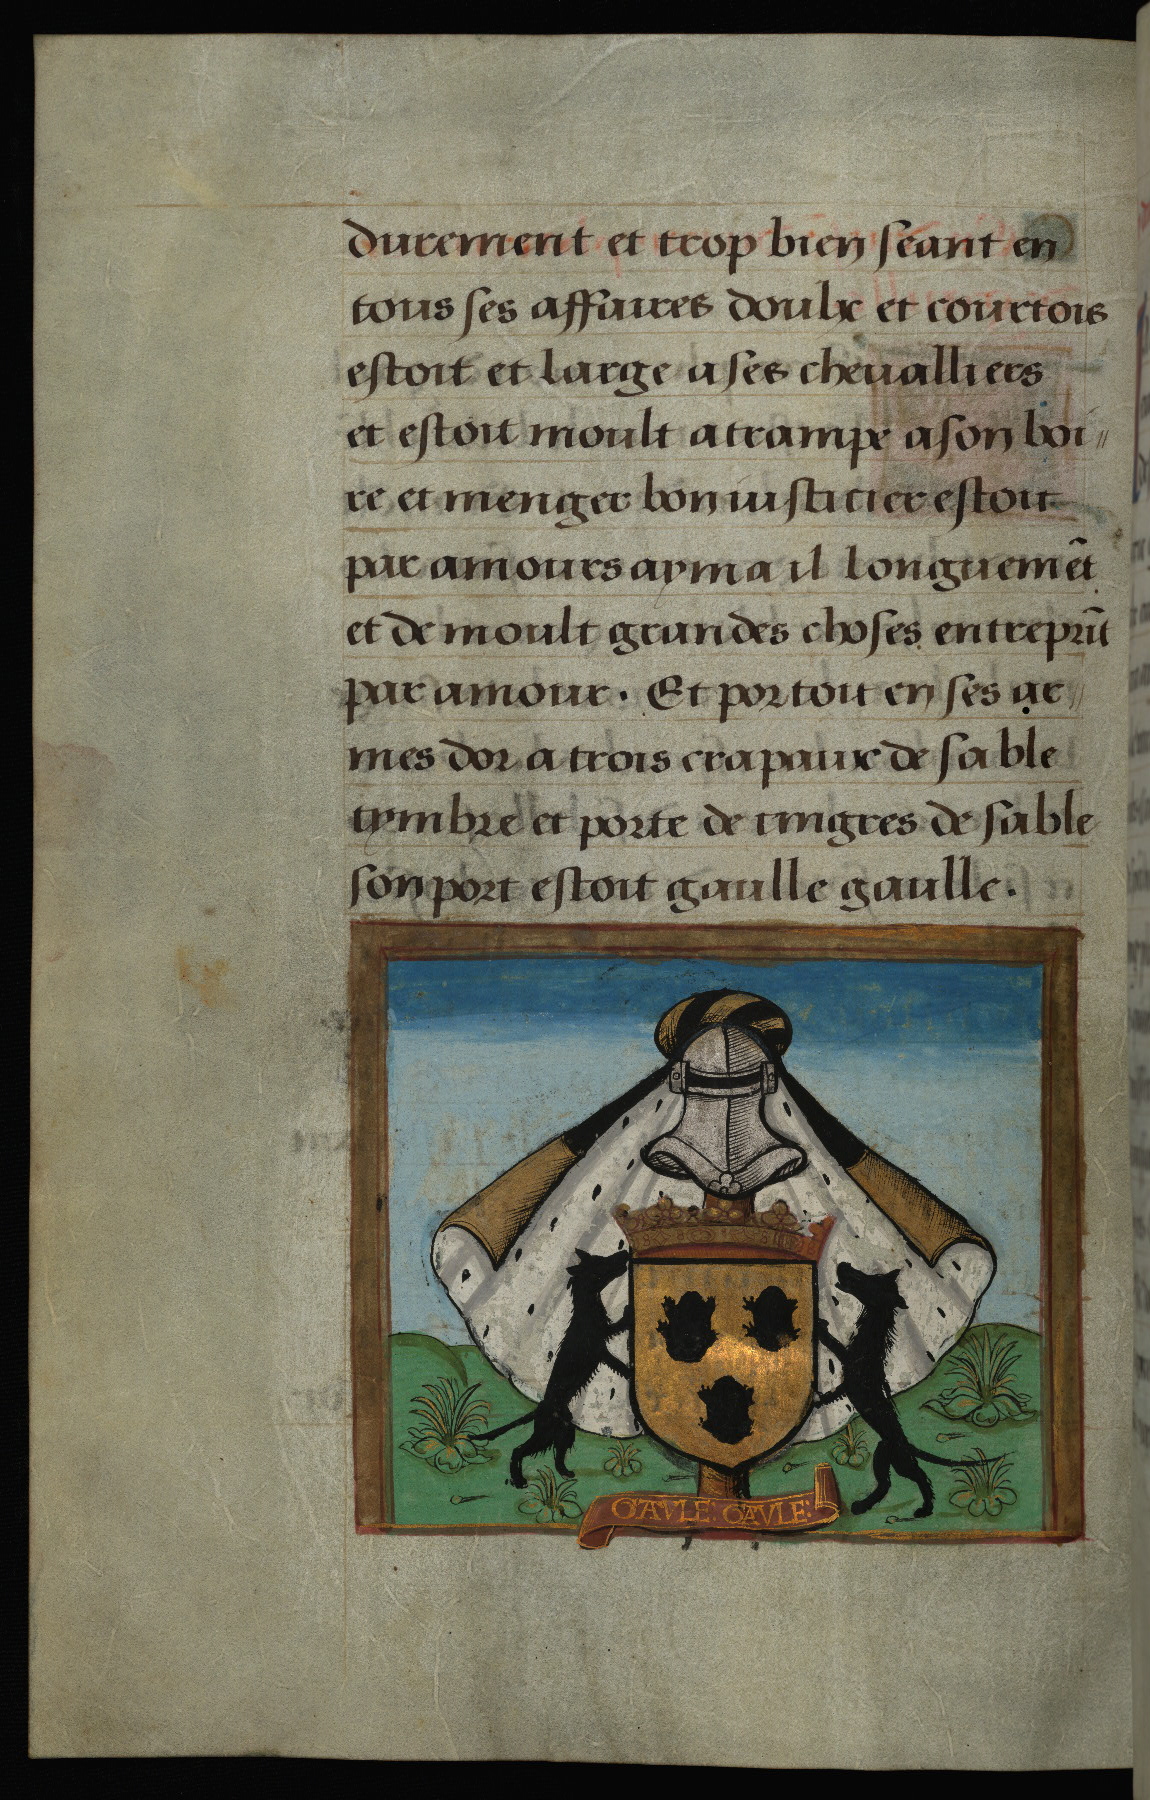 durement et trop bien seant en
tous ses affaires doulx et courtois
estoit et large a ses chevalliers
et estoit moult atrampe a son boi〃
re et menger bon iusticier estoit
par amours ayma il longuemẽt
et de moult grandes choses entreprĩt
par amour. Et portoit en ses ar〃
mes dor a trois crapaux de sable
tymbre et porte de tingres de sable
son port estoit gaulle gaulle.
GAVLE: GAVLE: